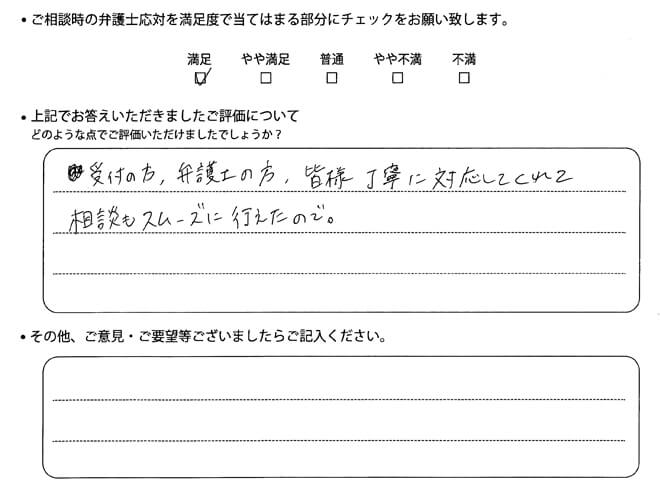 ・ご相談時の弁護士応対を満足度で当てはまる部分にチェックをお願い致します。
満足 やや満足 普通 やや不満 不満
☑ □ □ □ □
・上記でお答えいただきましたご評価について
どのような点でご評価いただけましたでしょうか？
受付の方，弁護士の方，皆様丁寧に対応してくれて
相談もスムーズに行えたので。
・その他、ご意見・ご要望等ございましたらご記入ください。